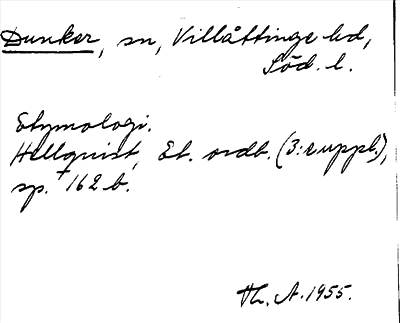 Dunker, sn, Villåttinge hd,
Söd. l.
Etymologi.
Hellquist, Et. ordb. (3:e uppl.),
sp. † 162 b.
Th. A. 1955.